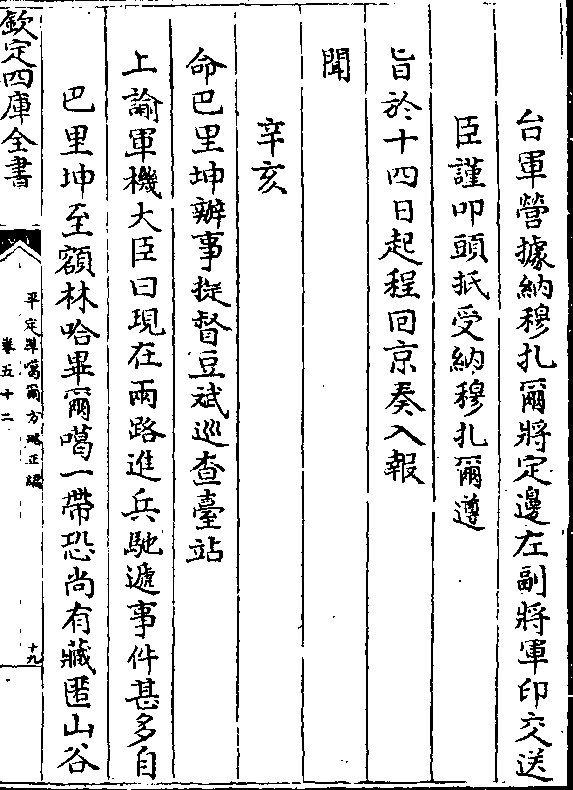 台軍營據納穆扎爾將定邊左副將軍印交送
臣謹叩頭抵受納穆扎爾遵
旨於十四日起程回京奏入報
聞
辛亥
命巴里坤辦事提督豆斌巡查臺站
上諭軍機大臣曰現在兩路進兵馳遞事件甚多自
巴里坤至額林哈畢爾噶一帶恐尚有藏匿山谷
欽定四庫全書
平定準噶爾方略正編
卷五十二
十九